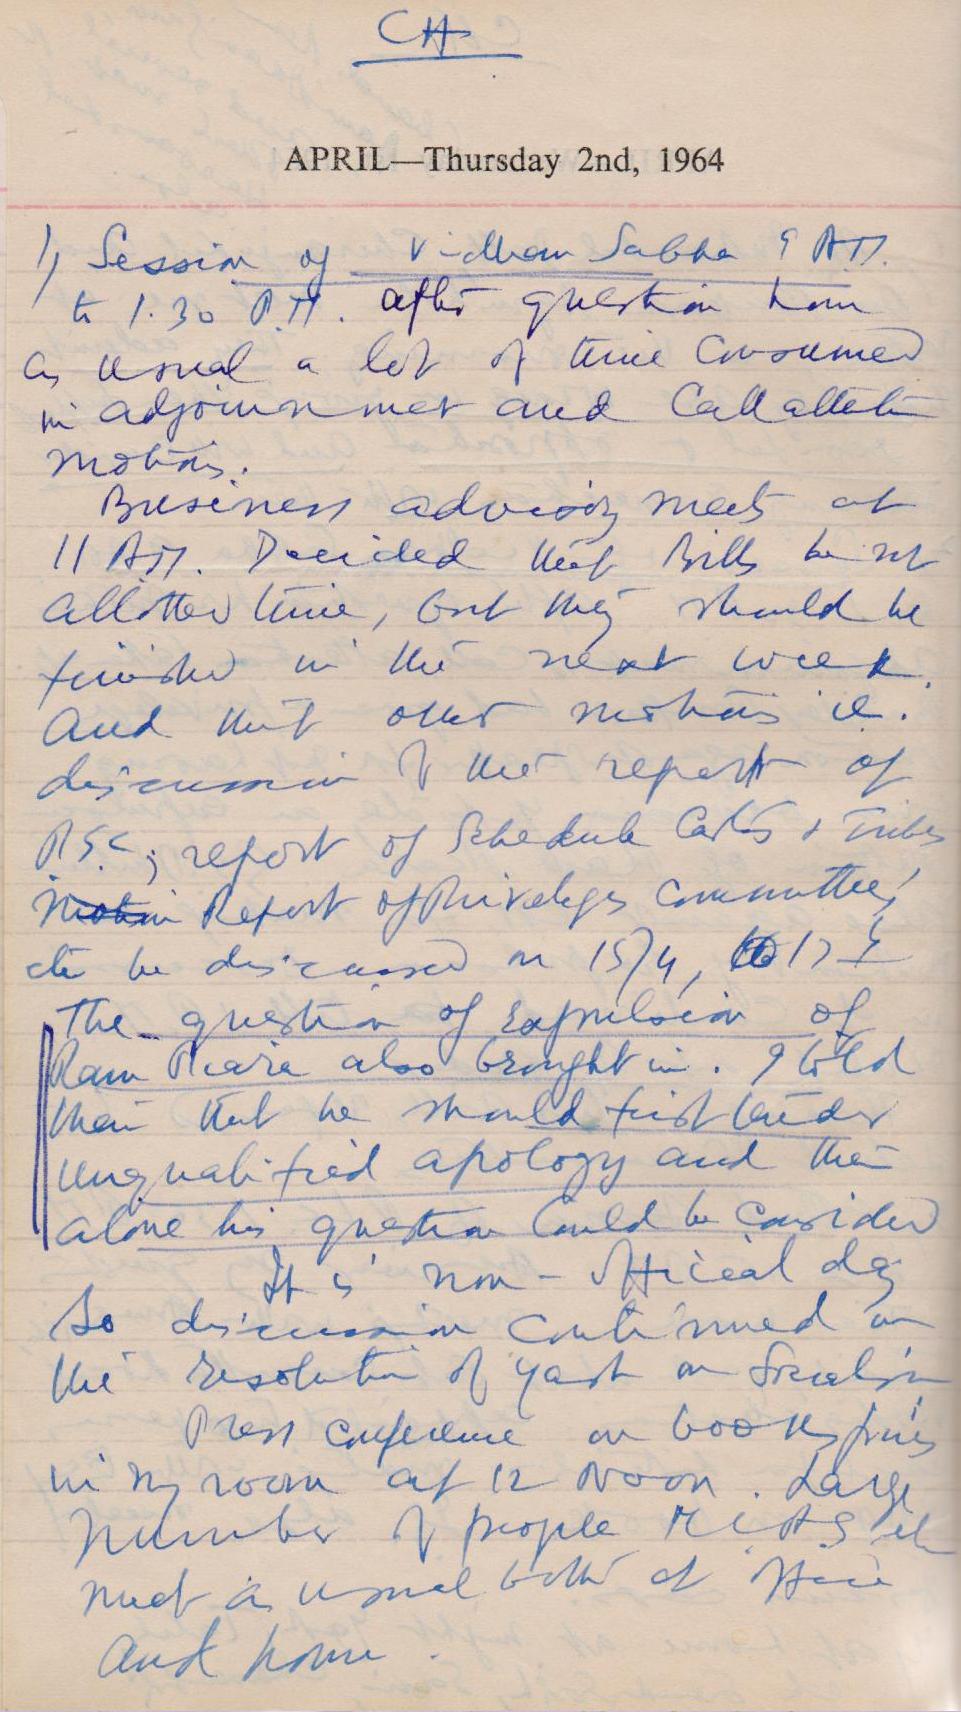 CH
APRIL—Thursday 2nd, 1964
1) Session of Vidhan Sabha 9 A.M.
to 1.30 P.M. After question hour
as usual a lot of time consumed
in adjournmet and Call attetin
motions.
Business advisory meets at
11 A.M. Decided that Bills be not
allotted time, but they should be
finished in the next week.
And that other motions ie.
discussion of the report of
PSC; report of Schedule Castes & Tribes
Report of Privileges Committee
etc be discussed on 15/4, 17
The question of Expulsion of
Ram Piara also brought in. I told
them that he should first tender
unqualified apology and then
alone his question could be considered
It is non-official day
So discussion continued on
the resolution of Yash on Socialism
Press conference on
in my room at 12 Noon. Large
number of people M.L.A.S etc
meet as usual both at office
and home.